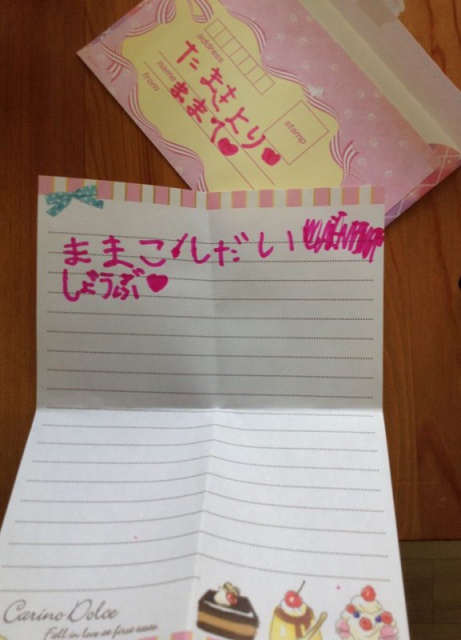 address
stamp
たまきより♥
name
ままて♥
from
ままこしだい
しょうぶ♥
Carino Dolce
Fall in love at first sight.